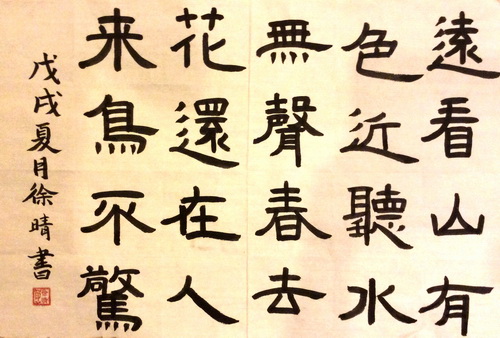 遠看山有
色近聽水
無聲春去
花還在人
来鳥不驚
戊戌夏月徐晴書